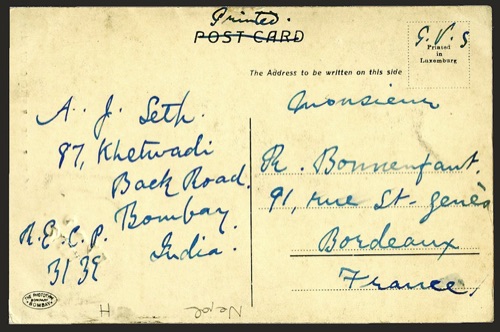 Printed.
POST CARD
G.V.S
Printed
in
Luxemburg
The Address to be written on this side
A. J. Seth.
97, Khetwadi
Back Road.
Bombay
India.
R.E.C.P.
3139
Monsieur
R. Bonnenfant.
91, rue St-Genès
Bordeaux
France.
THE PHOTOTYPE
BOMBAY
H
Nepal